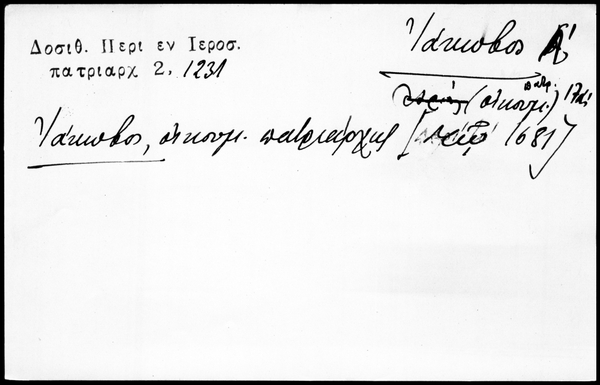 Δοσιθ. Περι εν Ιεροσ.
πατριαρχ 2, 1231
Ἰάκωβος Α'
(οἰκουμ. πατρ.) 17αι
Ἰάκωβος, οἰκουμ. πατριάρχης [ 1681]